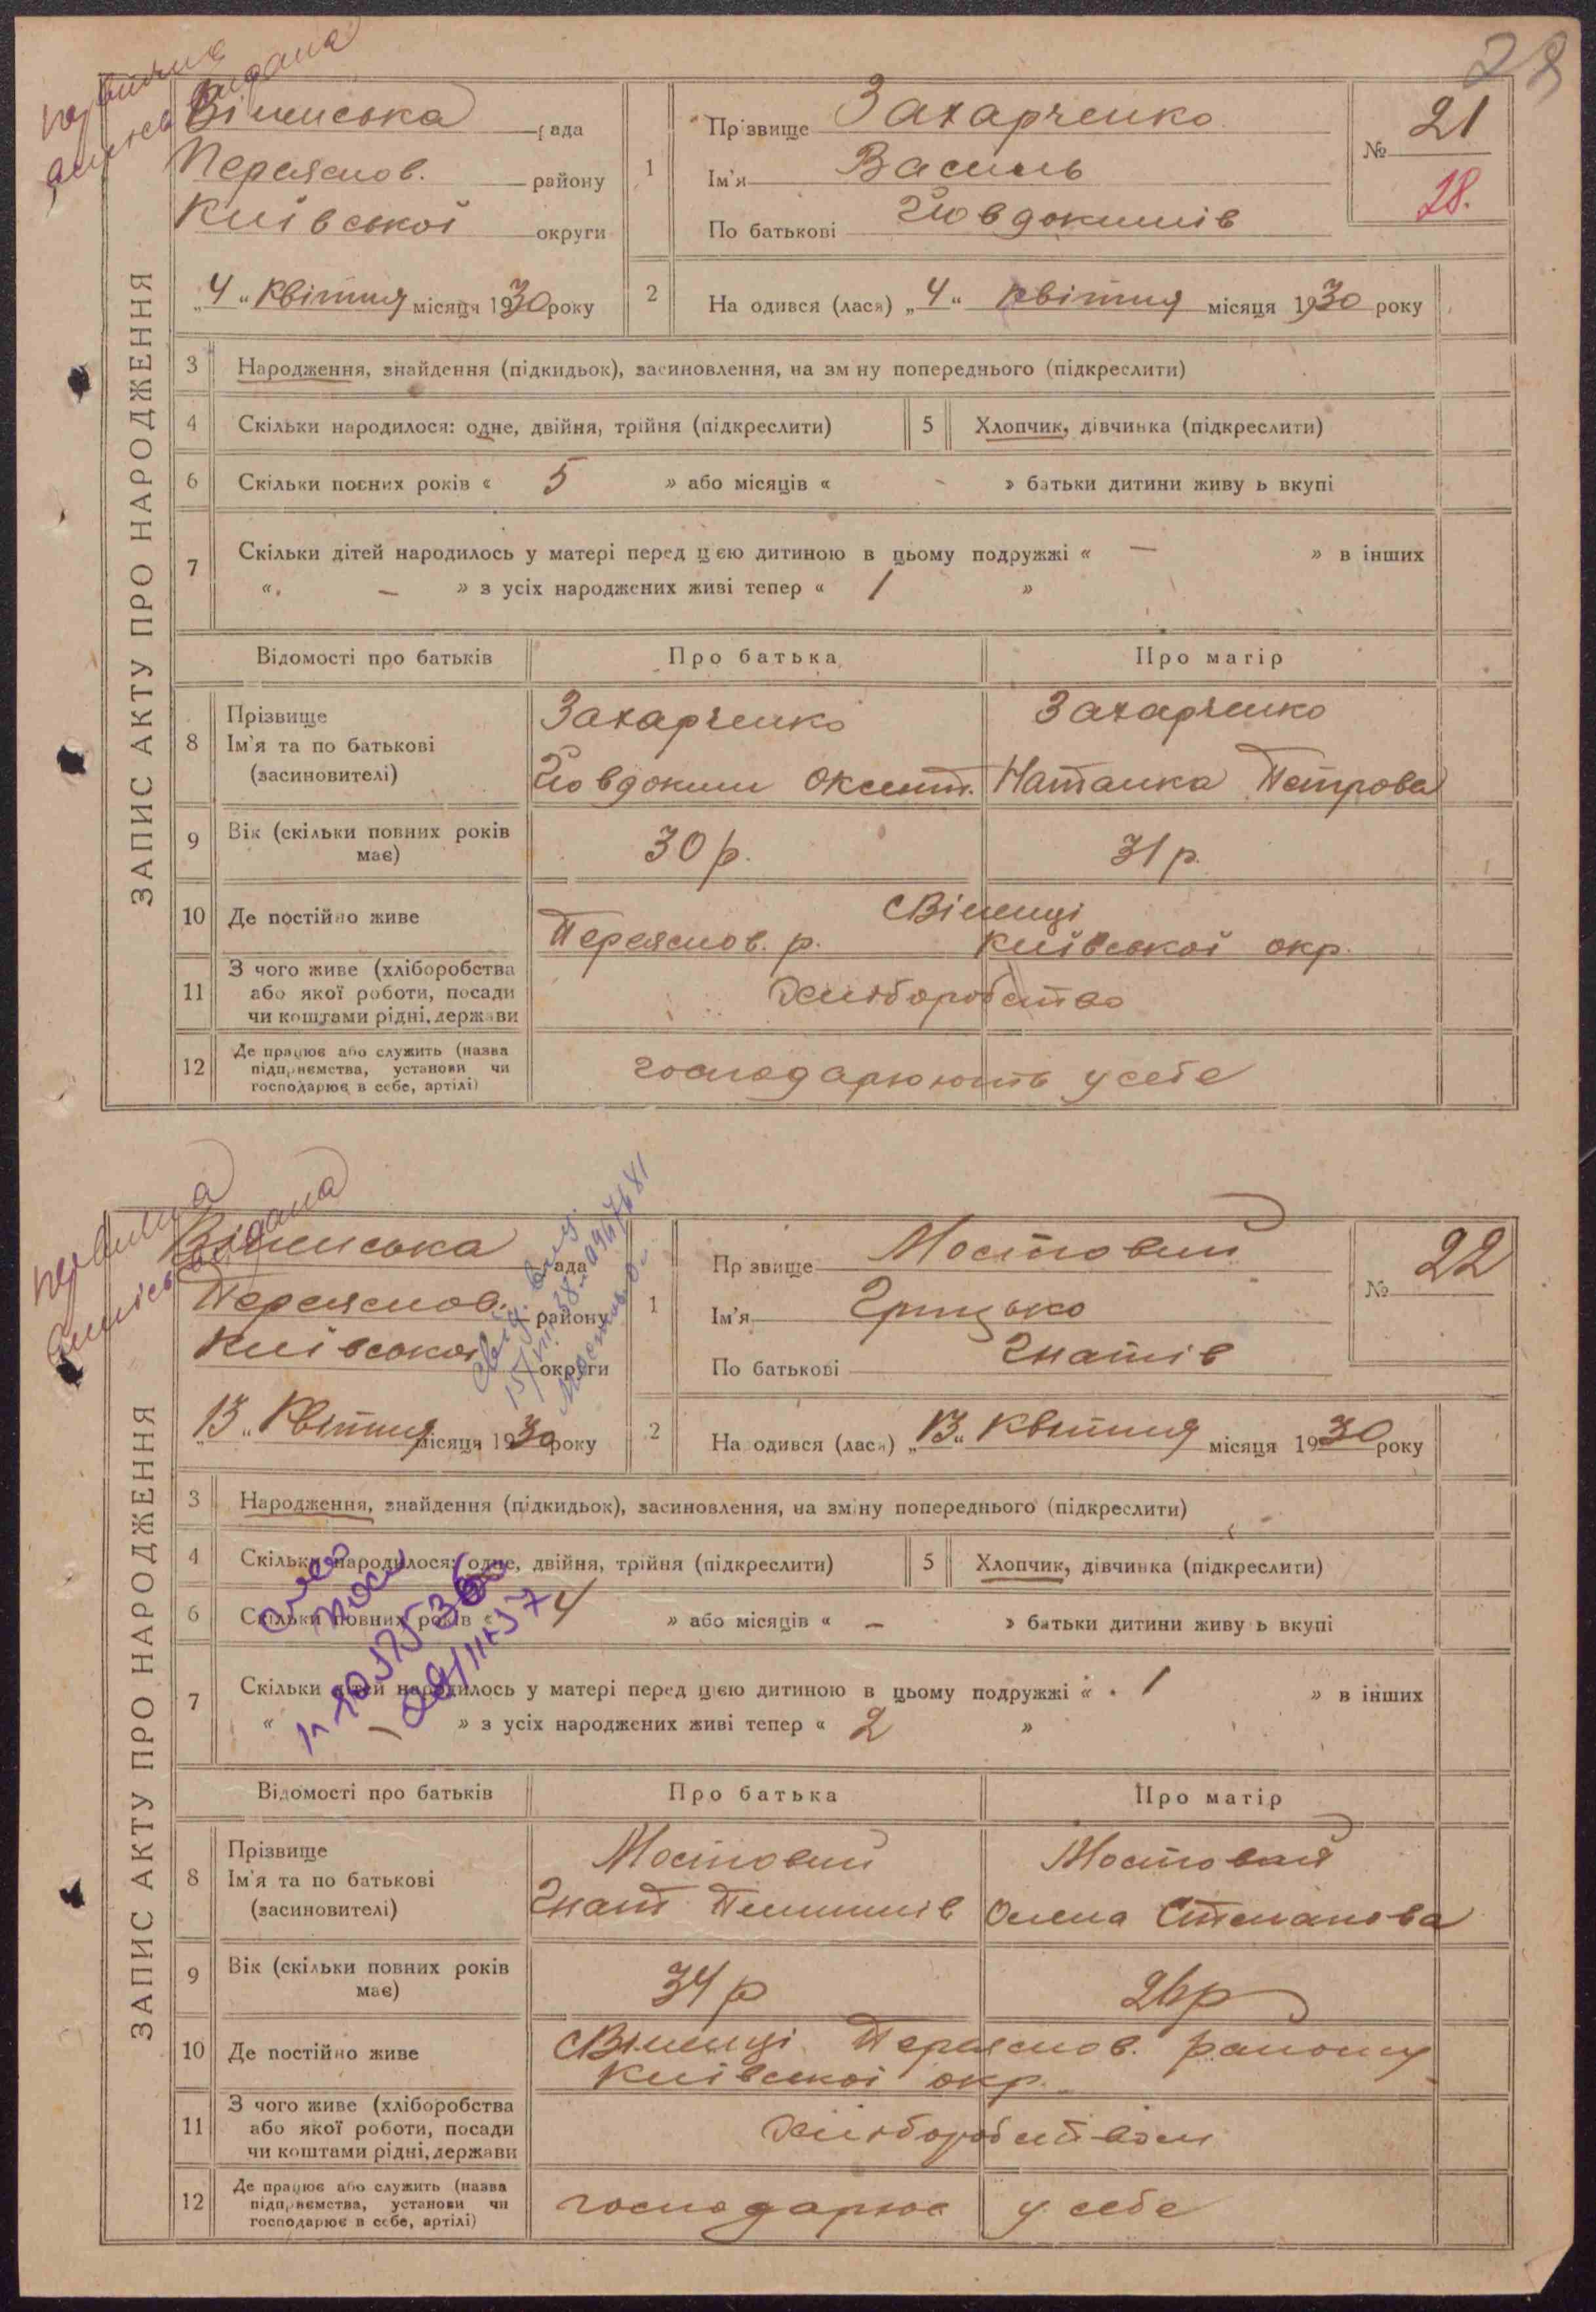 28
ЗАПИС АКТУ ПРО НАРОДЖЕННЯ
Віненська рада
Переяслов. району
Київської округи
„4“ квітня місяця 1930 року
1
Прізвище Захарченко
Ім'я Василь
По батькові Йовдокимів
№ 21
28.
2
Народився (лася) „4“ квітня місяця 1930 року
3 Народження, знайдення (підкидьок), засиновлення, на зміну попереднього (підкреслити)
4 Скільки народилося: одне, двійня, трійня (підкреслити)
5 Хлопчик, дівчинка (підкреслити)
6 Скільки повних років « 5 » або місяців « - » батьки дитини живуть вкупі
7 Скільки дітей народилось у матері перед цією дитиною в цьому подружжі « — » в інших
« — » з усіх народжених живі тепер « 1 »
Відомості про батьків Про батька Про матір
8 Прізвище
Ім'я та по батькові
(засиновителі)
Захарченко
Йовдоким Оксент.
Захарченко
Наталка Петрова
9 Вік (скільки повних років має)
30 р. 31 р.
10 Де постійно живе
с Віненці
Переяслов. р. Київської окр.
11 З чого живе (хліборобства
або якої роботи, посади
чи коштами рідні, держави
Хліборобство
12 Де працює або служить (назва
підприємства, установи чи
господарює в себе, артілі)
господарюють у себе
ЗАПИС АКТУ ПРО НАРОДЖЕННЯ
Віненська рада
Переяслов. району
Київської округи
„13“ Квітня місяця 1930 року
1
Прізвище Мостовий
Ім'я Грицько
По батькові Гнатів
№ 22
2
Народився (лася) „13“ Квітня місяця 1930 року
3 Народження, знайдення (підкидьок), засиновлення, на зміну попереднього (підкреслити)
4 Скільки народилося: одне, двійня, трійня (підкреслити)
5 Хлопчик, дівчинка (підкреслити)
6 Скільки повних років « 4 » або місяців « – » батьки дитини живуть вкупі
7 Скільки дітей народилось у матері перед цією дитиною в цьому подружжі « 1 » в інших
« – » з усіх народжених живі тепер « 2 »
Відомості про батьків Про батька Про матір
8 Прізвище
Ім'я та по батькові
(засиновителі)
Мостовий
Гнат Пилипів
Мостовая
Олена Степанова
9 Вік (скільки повних років має)
34 р 26 р
10 Де постійно живе
с Віненці Переяслов. району
Київської окр.
11 З чого живе (хліборобства
або якої роботи, посади
чи коштами рідні, держави
Хліборобством
12 Де працює або служить (назва
підприємства, установи чи
господарює в себе, артілі)
господарює у себе